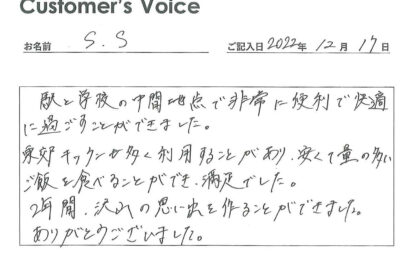 Customer's Voice
お名前 S.S ご記入日 2022年 12月 17日
駅と学校の中間地点で非常に便利で快適
に過ごすことができました。
東郊キッチンが多く利用することがあり、安くて量の多い
ご飯を食べることができ、満足でした。
2年間、沢山の思い出を作ることができました。
ありがとうございました。